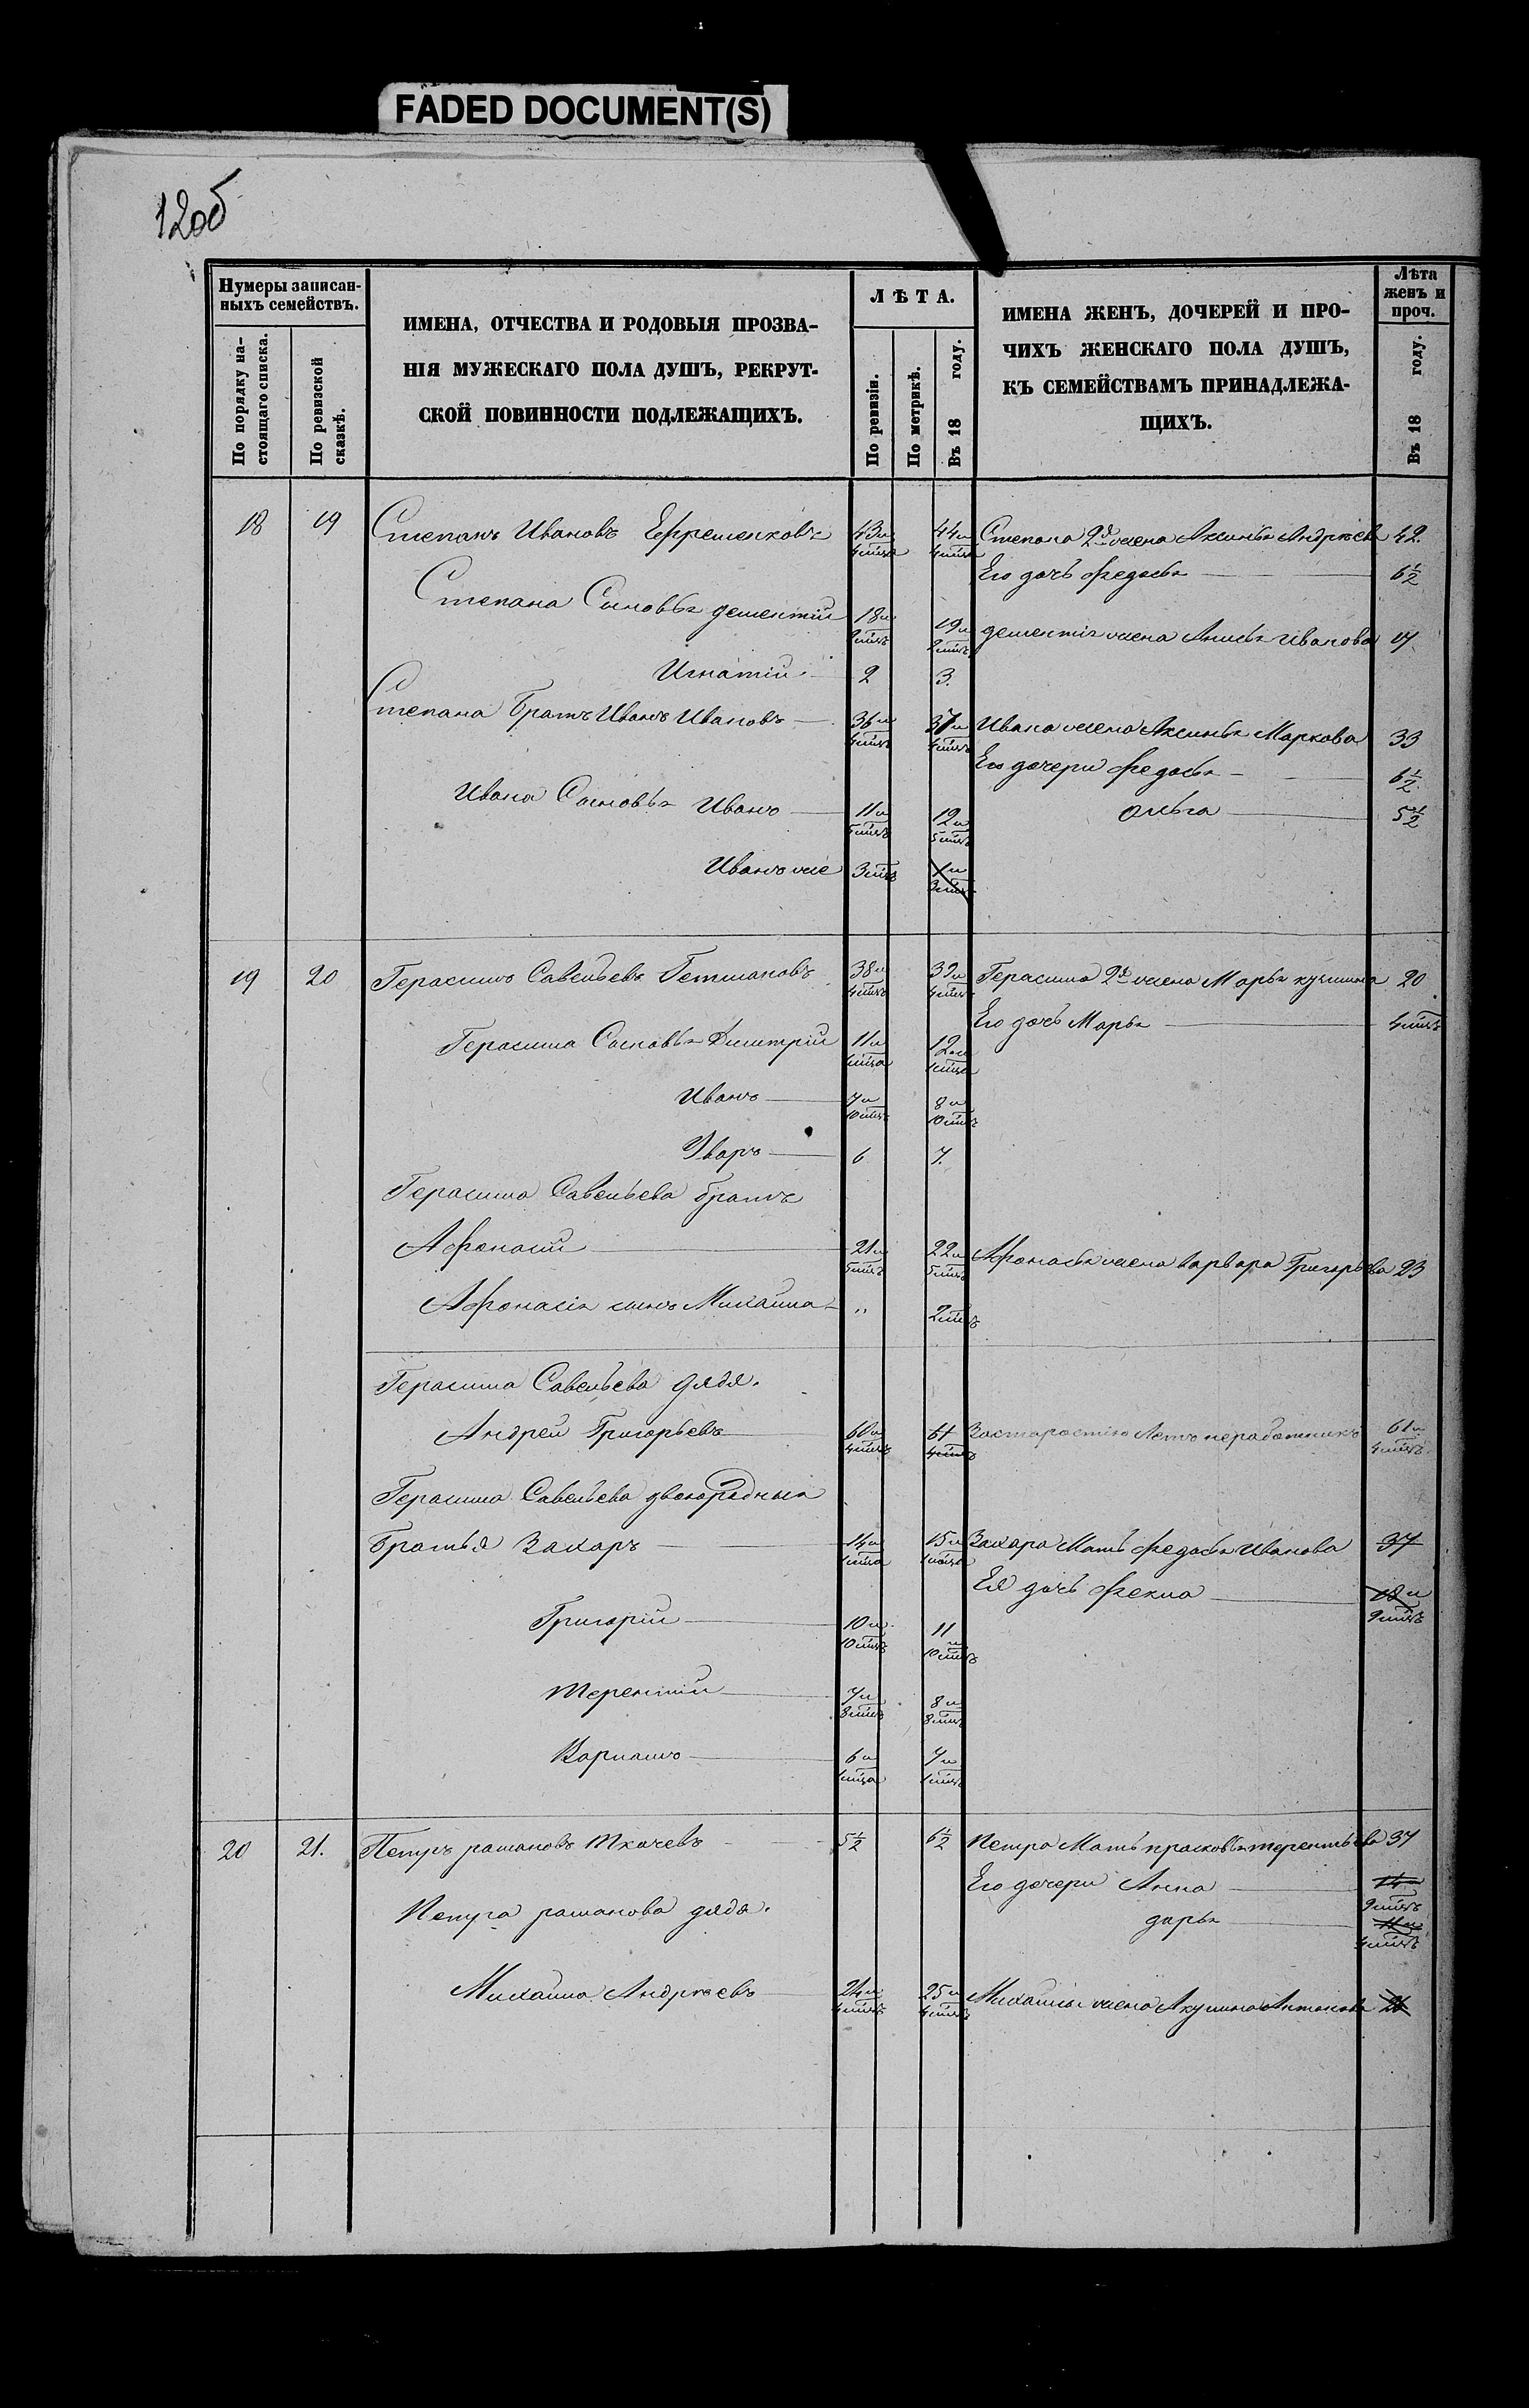 FADED DOCUMENT(S)
12об
Нумеры записан-
ныхъ семействъ.
По порядку на-
стоящаго списка.
По ревизской
сказкѣ.
ИМЕНА, ОТЧЕСТВА И РОДОВЫЯ ПРОЗВА-
НІЯ МУЖЕСКАГО ПОЛА ДУШЪ, РЕКРУТ-
СКОЙ ПОВИННОСТИ ПОДЛЕЖАЩИХЪ.
ЛѢТА.
По ревизіи.
По метрикѣ.
Въ 18 году.
ИМЕНА ЖЕНЪ, ДОЧЕРЕЙ И ПРО-
ЧИХЪ ЖЕНСКАГО ПОЛА ДУШЪ,
КЪ СЕМЕЙСТВАМЪ ПРИНАДЛЕЖА-
ЩИХЪ.
Лѣта
женъ и
проч.
Въ 18 году.
18 19 Степанъ Ивановъ Ефременковъ 43 и 4 мца 44 и 4 мца Степана 2я жена Аксинья Андрѣева 42
Его дочь Федосья 6½
Степана Сыновья дементій 18 и 2 мцъ 19 и 2 мцъ дементія жена Анисья Иванова 17
Игнатій 2 3
Степана Братъ Иванъ Ивановъ 36 и 4 мцъ 37 и 4 мцъ Ивана жена Аксинья Маркова 33
Его дочери Федосья 6½
Ивана Сыновья Иванъ 11 и 5 мцъ 12 и 5 мцъ Ольга 5½
Иванъ же 3 мцъ 1 и 3 мцъ
19 20 Герасимъ Савельевъ Гетмановъ 38 и 4 мцъ 39 и 4 мцъ Герасима 2я жена Марья кузмина 20
Его дочь Марья 4 мцъ
Герасима Сыновья Дмитрій 11 и 1 мца 12 и 1 мца
Иванъ 7 и 10 мцъ 8 и 10 мцъ
Уваръ 6 7
Герасима Савельева братъ
Афонасій 21 и 5 мцъ 22 и 5 мцъ Афонасья жена варвара Григорьева 23
Афонасія сынъ Михаила " 2 мцъ
Герасима Савельева дядя.
Андрей Григорьевъ 60 и 4 мцъ 61 4 мцъ За старостію Летъ неработникъ 61 и 4 мцъ
Герасима Савельева двоюродныя
Братья Захаръ 14 и 1 мца 15 и 1 мца Захара Мать Федосья Иванова 37
Ея дочь Фекла 18 и 9 мцъ
Григорій 10 и 10 мцъ 11 и 10 мцъ
терентій 7 и 8 мцъ 8 и 8 мцъ
Варламъ 6 и 1 мца 7 и 1 мца
20 21. Петръ рамановъ ткачевъ 5½ 6½ Петра Мать прасковья терентьева 37
Его дочери Анна 14 9 мцъ
Петра раманова дядя. дарья 11 и 4 мцъ
Михаила Андрѣевъ 24 и 4 мцъ 25 и 4 мцъ Михаилы жена Акулина Антонова 26